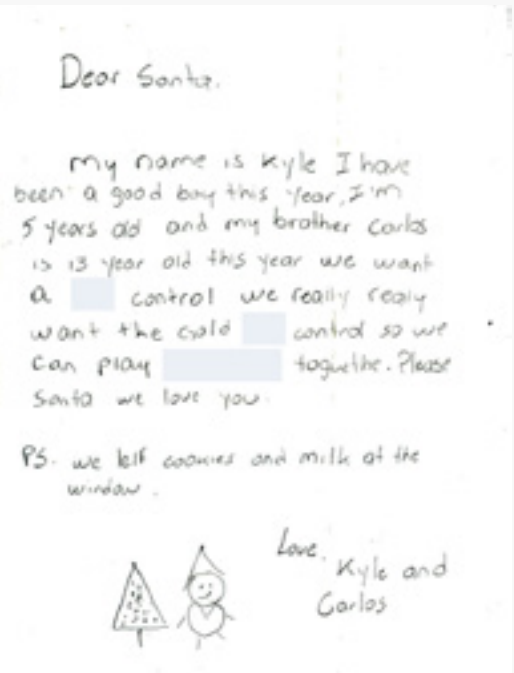 Dear Santa.
My name is Kyle I have
been a good boy this year, I'm
5 years old and my brother Carlos
is 13 year old this year we want
a control we really realy
want the gold control so we
can play toguethe. Please
Santa we love you.
PS. we left cookies and milk at the
window.
Love,
Kyle and
Carlos